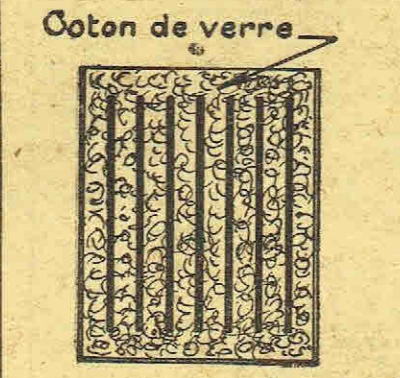 Coton de verre